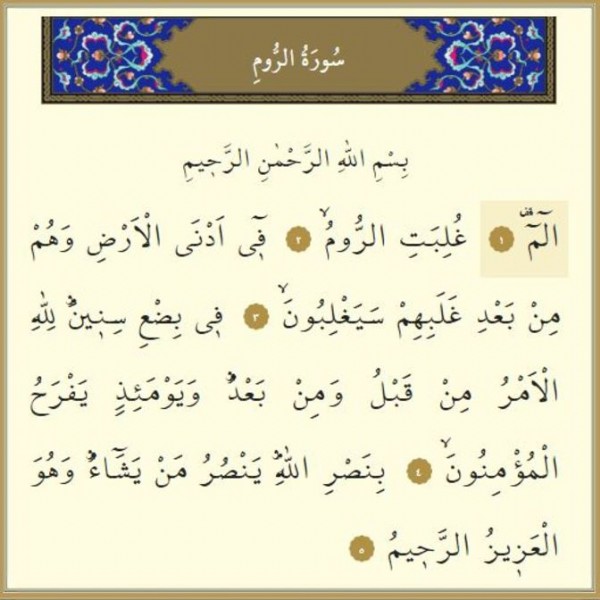 سُورَةُ الرُّومِ
بِسْمِ اللّٰهِ الرَّحْمٰنِ الرَّحٖيمِ
الٓمٓ ۚ ﴿١﴾ غُلِبَتِ الرُّومُۙ ﴿٢﴾ فٖٓي اَدْنَى الْاَرْضِ وَهُمْ
مِنْ بَعْدِ غَلَبِهِمْ سَيَغْلِبُونَۙ ﴿٣﴾ فٖي بِضْعِ سِنٖينَؕ لِلّٰهِ
الْاَمْرُ مِنْ قَبْلُ وَمِنْ بَعْدُؕ وَيَوْمَئِذٍ يَفْرَحُ
الْمُؤْمِنُونَۙ ﴿٤﴾ بِنَصْرِ اللّٰهِؕ يَنْصُرُ مَنْ يَشَٓاءُؕ وَهُوَ
الْعَزٖيزُ الرَّحٖيمُ ﴿٥﴾